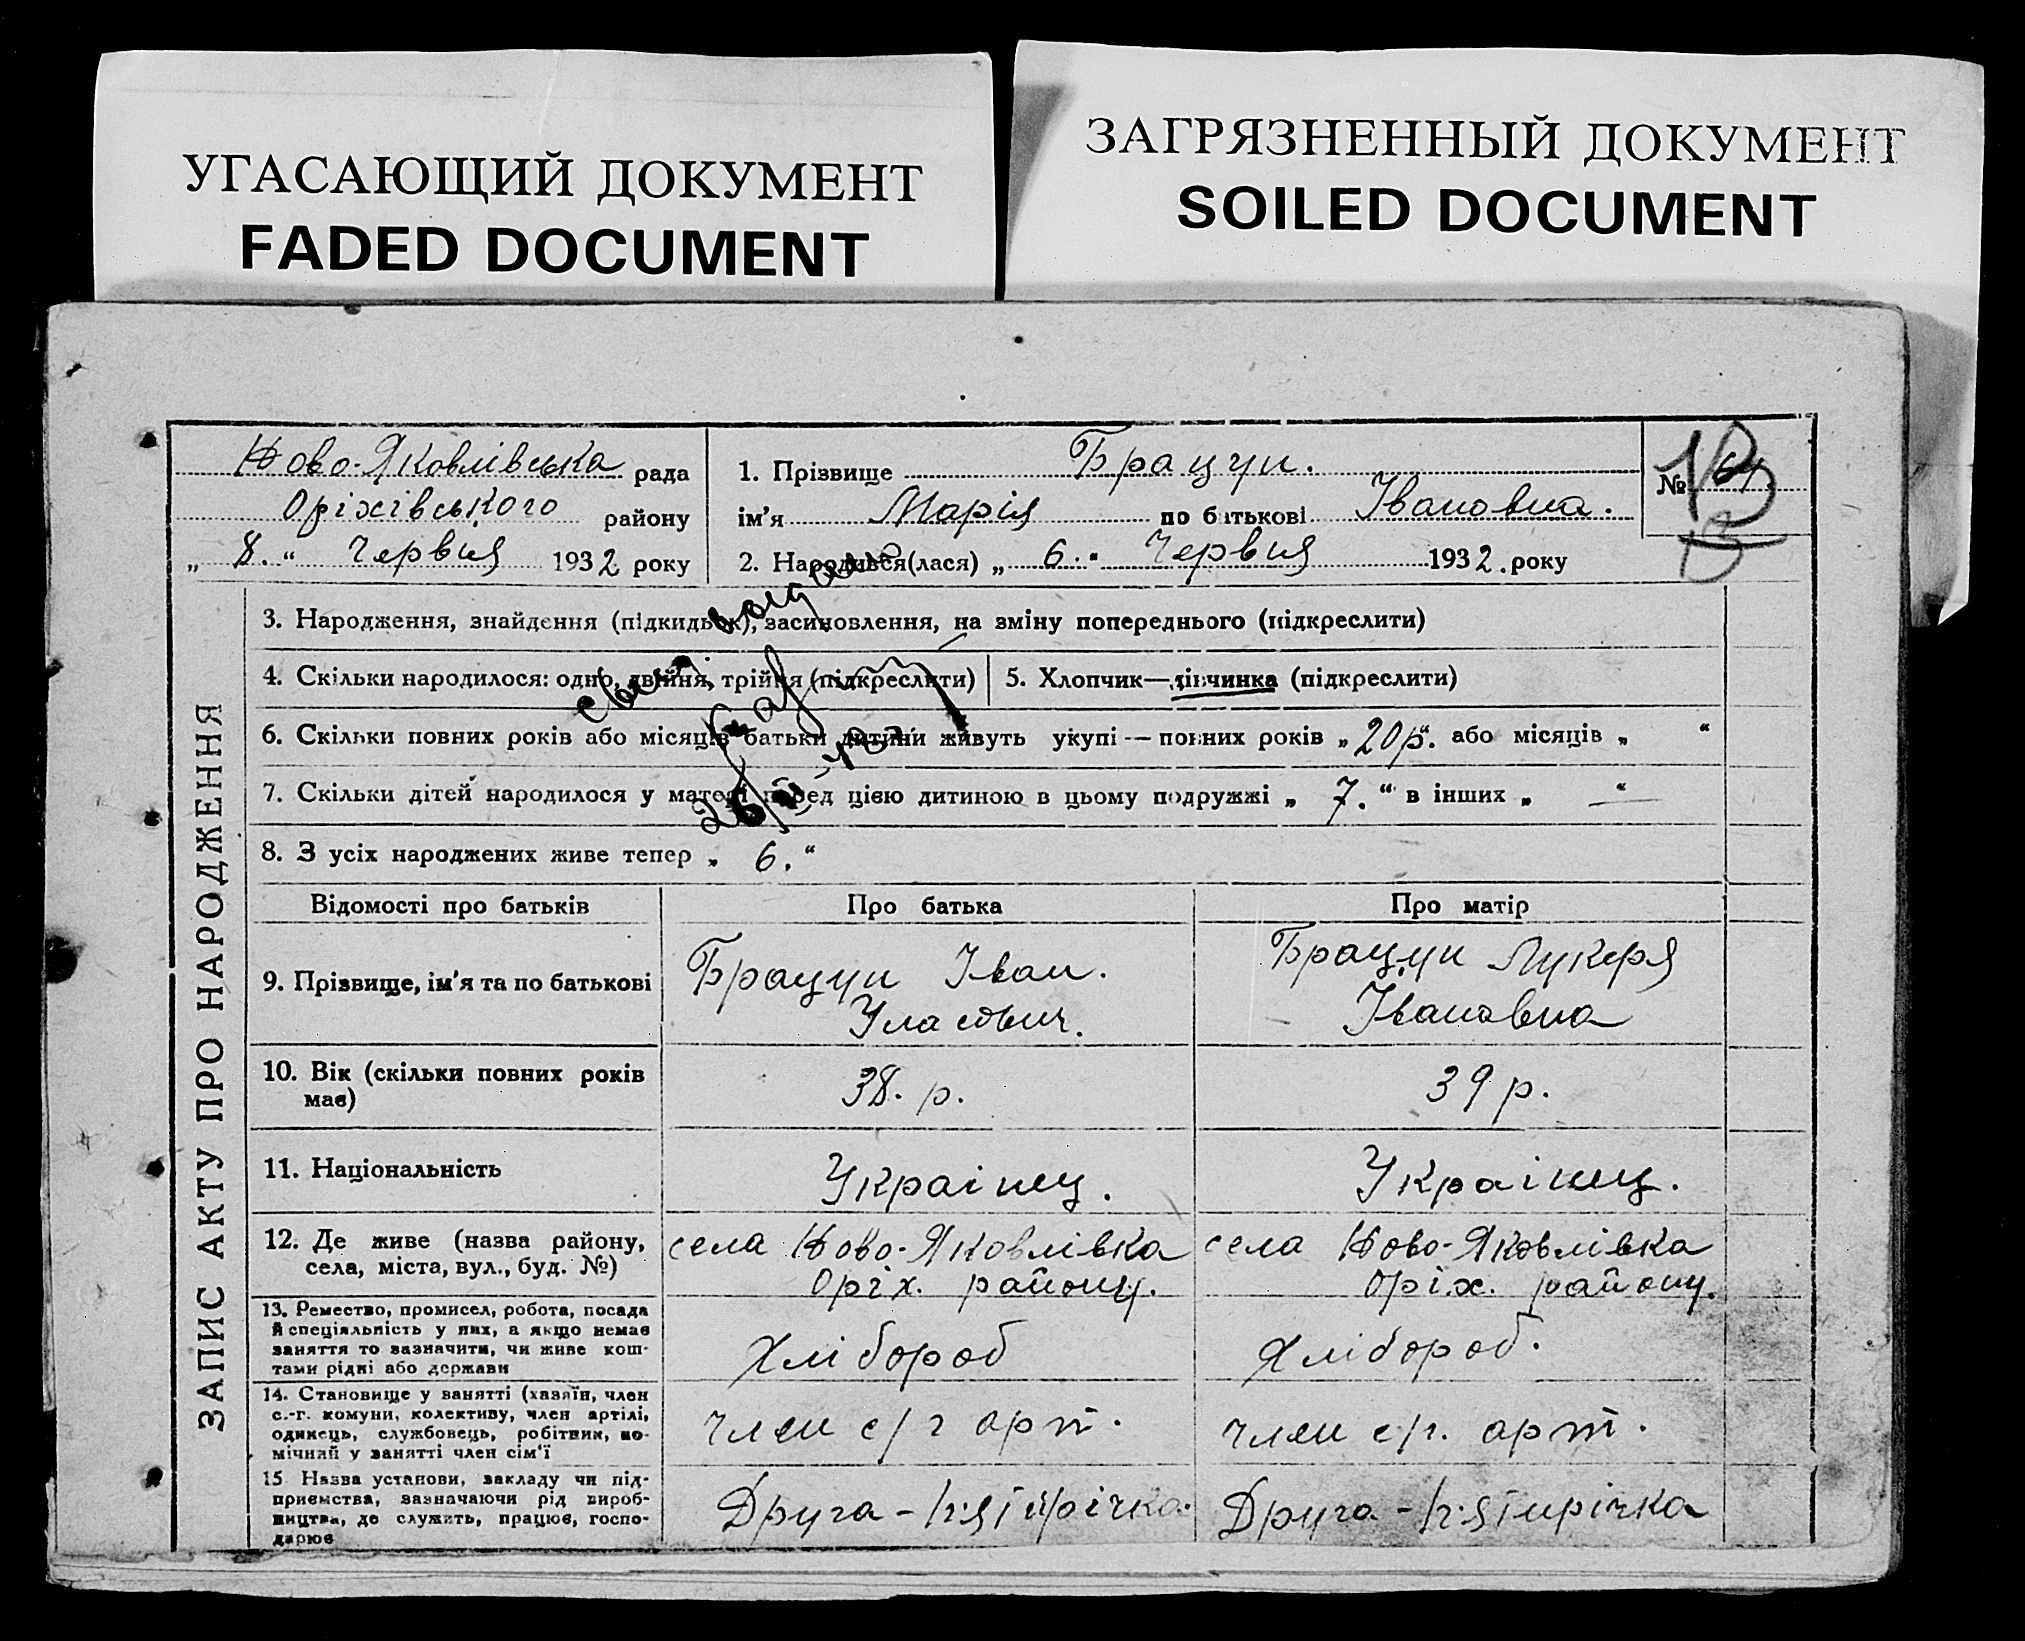 УГАСАЮЩИЙ ДОКУМЕНТ
FADED DOCUMENT
ЗАГРЯЗНЕННЫЙ ДОКУМЕНТ
SOILED DOCUMENT
Ново-Яковлівська рада
Оріхівського району
„ 8. “ Червня 1932 року
1. Прізвище Брацун.
ім'я Марія по батькові Івановна.
2. Народився(лася) „ 6. “ Червня 1932. року
№
ЗАПИС АКТУ ПРО НАРОДЖЕННЯ
3. Народження, знайдення (підкидьок), засиновлення, на зміну попереднього (підкреслити)
4. Скільки народилося: одно, двійня, трійня (підкреслити)
5. Хлопчик—дівчинка (підкреслити)
6. Скільки повних років або місяців батьки дитини живуть укупі — повних років „ 20р. “ або місяців „ “
7. Скільки дітей народилося у матері перед цією дитиною в цьому подружжі „ 7. “ в інших „ — “
8. З усіх народжених живе тепер „ 6. “
Відомості про батьків
Про батька
Про матір
9. Прізвище, ім'я та по батькові
Брацун Іван.
Уласович.
Брацун Лукеря
Івановна
10. Вік (скільки повних років
має)
38. р.
39 р.
11. Національність
Украінец.
Украінец.
12. Де живе (назва району,
села, міста, вул., буд. №)
села Ново-Яковлівка
Оріх. району.
села Ново-Яковлівка
Оріх. району.
13. Ремество, промисел, робота, посада
й спеціяльність у них, а якщо немає
заняття то зазначити, чи живе кош-
тами рідні або держави
Хлібороб
Хлібороб.
14. Становище у занятті (хазяїн, член
с.-г. комуни, колективу, член артілі,
одинець, службовець, робітник, по-
мічний у занятті член сім'ї
член с/г арт.
член с/г. арт.
15 Назва установи, закладу чи під-
приємства, зазначаючи рід вироб-
ництва, де служить, працює, госпо-
дарює
Друга-
Друга-